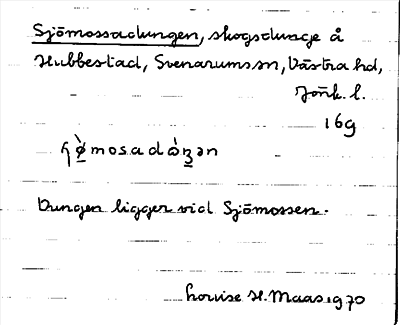 Sjömossadungen, skogsdunge å
Hubbestad, Svenarums sn, Västra hd,
Jönk. l.
16g
Dungen ligger vid Sjömossen.
Lovise H. Maas 1970